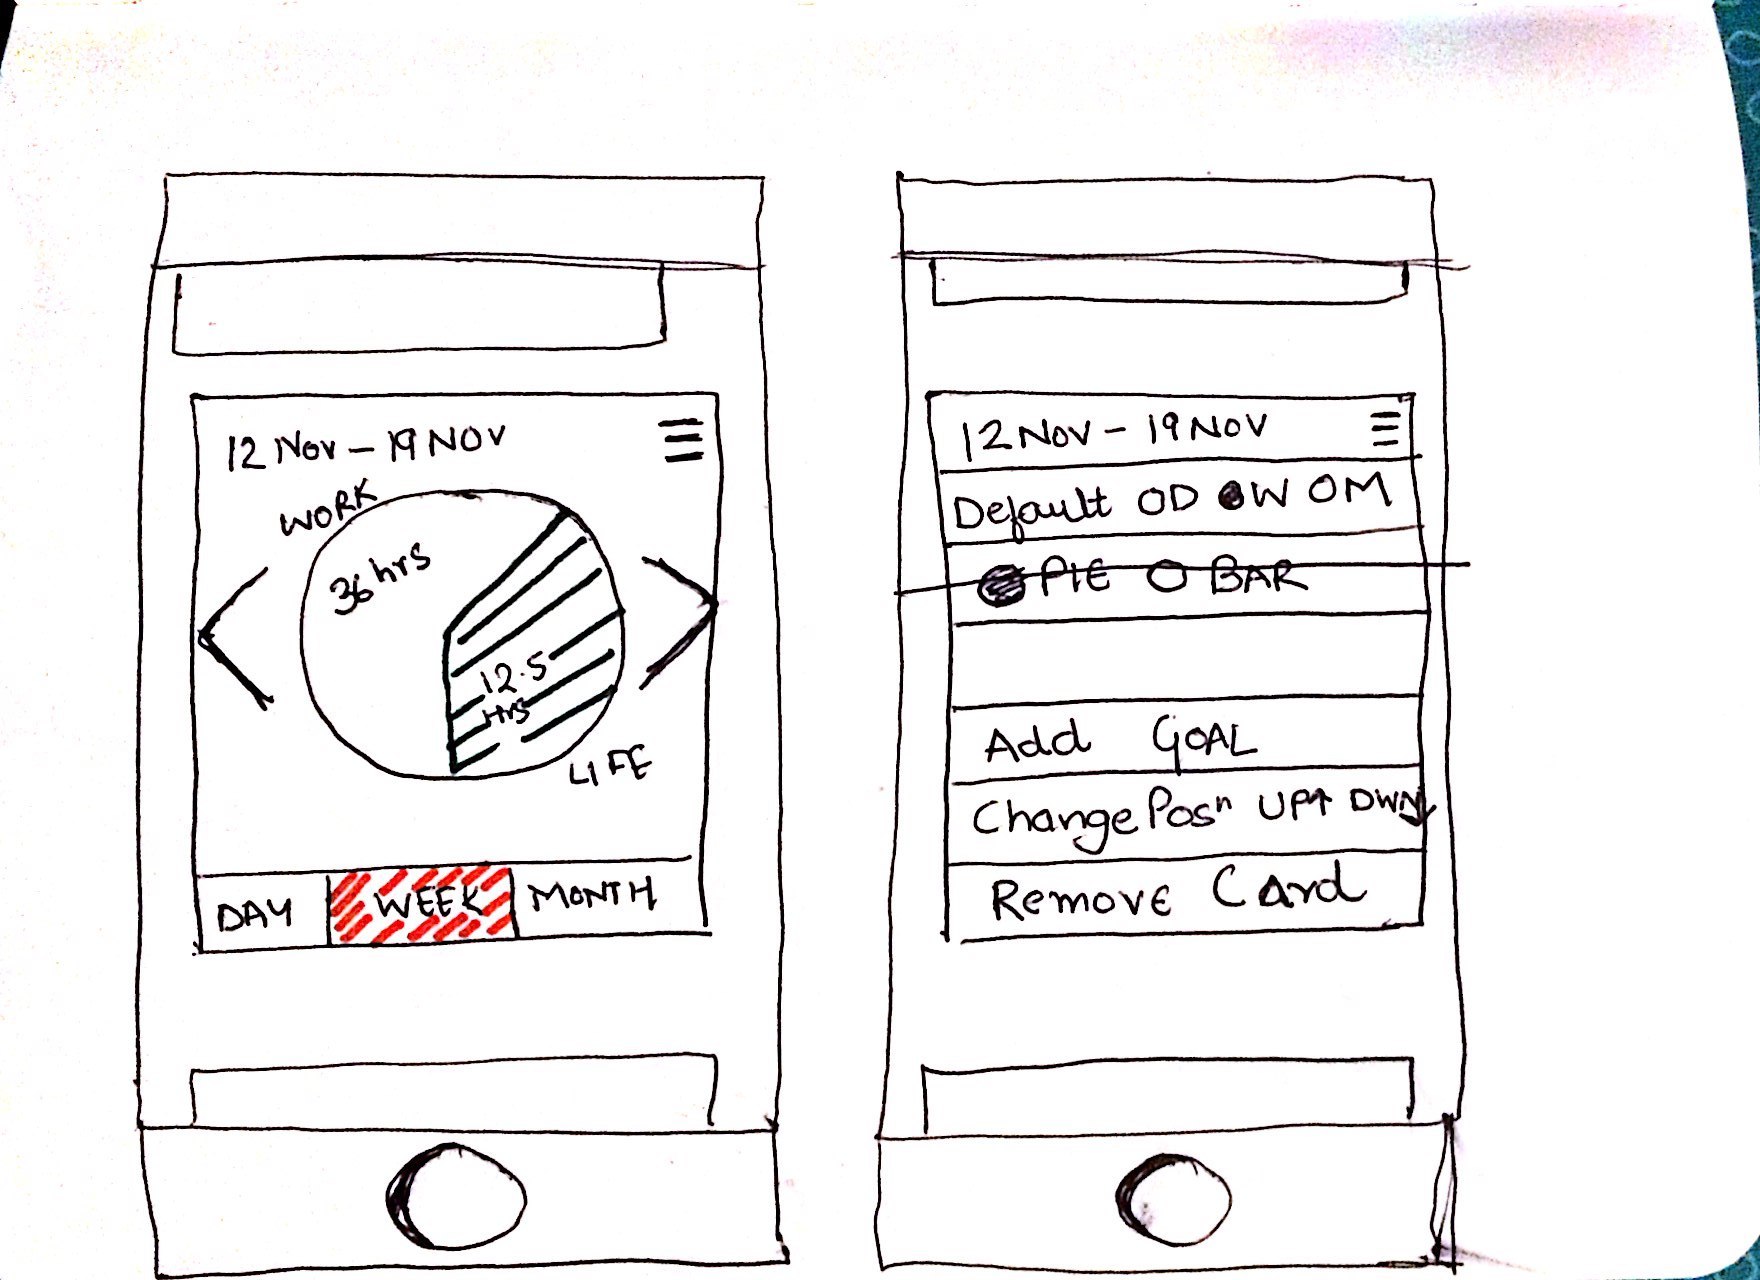 12 Nov – 19 NOV
WORK
36 hrs
12.5
Hrs
LIFE
DAY WEEK MONTH
12 NOV – 19 NOV
Default O D ● W O M
● PIE O BAR
Add GOAL
Change Posⁿ UP↑ DWN↓
Remove Card